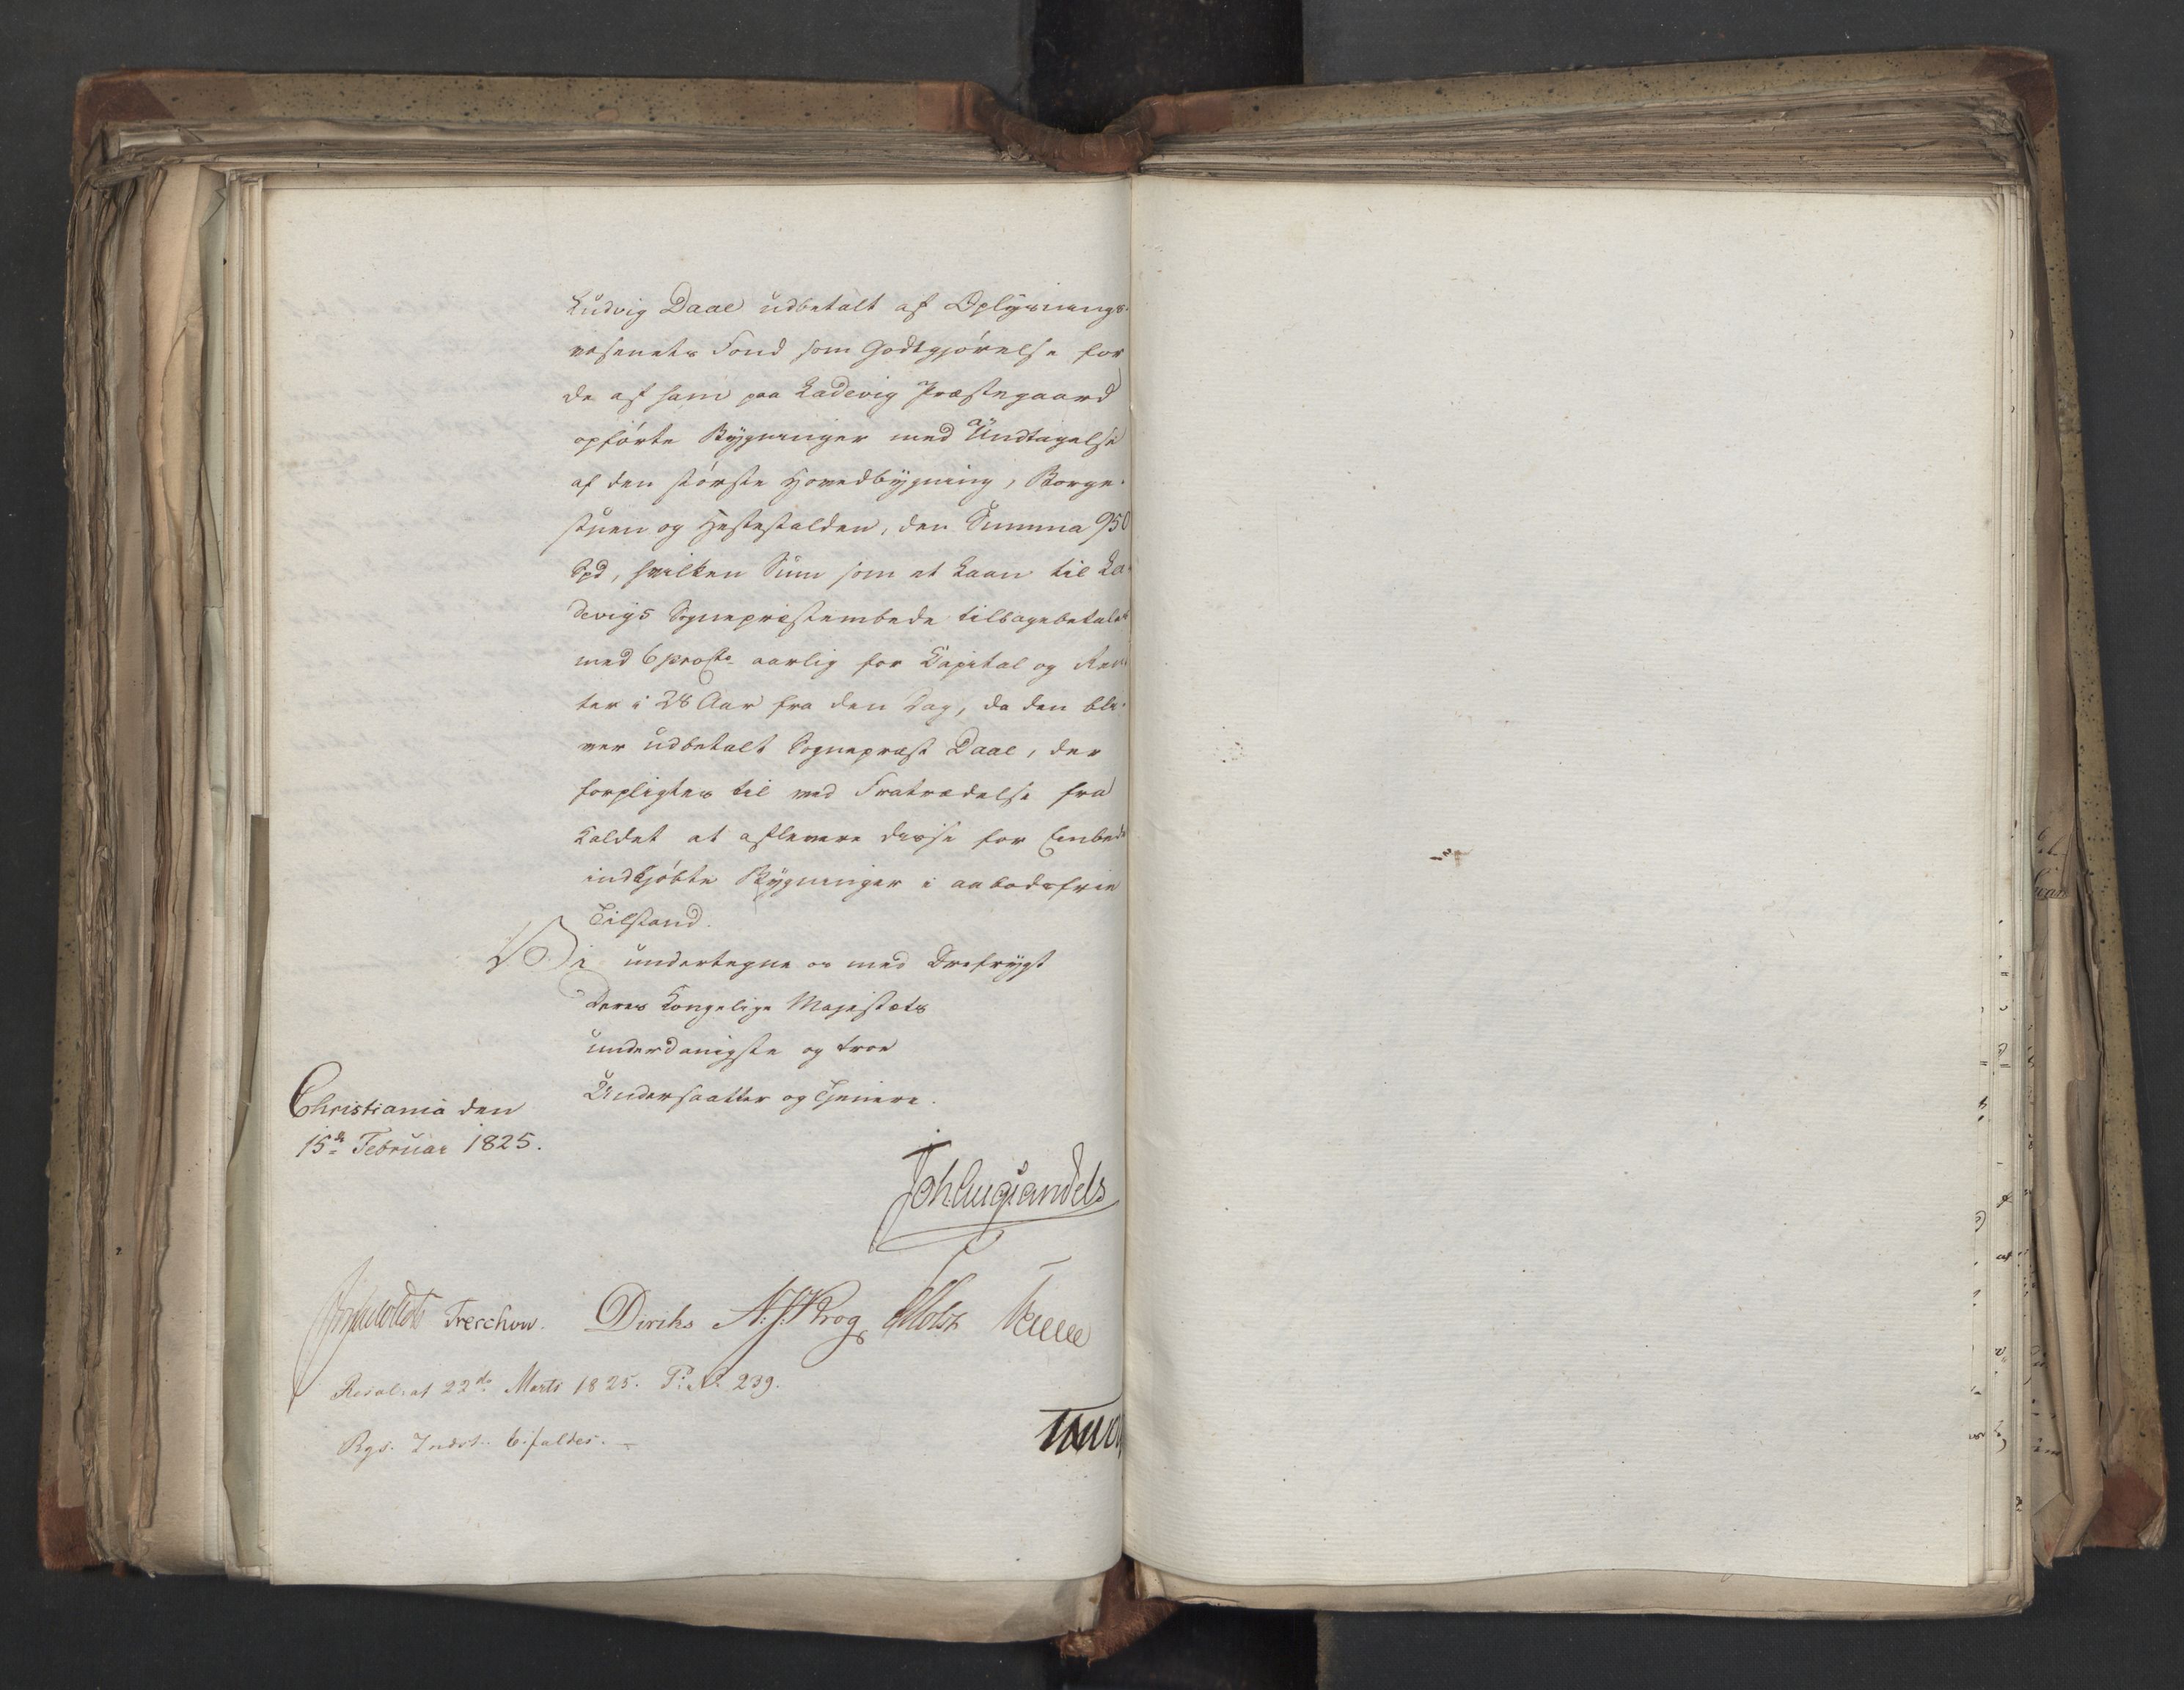 Ludvig Daae udbetalt af Oplysnings-
væsenets Fond som Godtgjørelse for
de af ham paa Ladevig Præstegaard
opførte Bygninger med Undtagelse
af den største Hovedbygning, Borge-
stuen og Hestestalden, den Summa 950
Spd, hvilken Sum som et Laan til La-
devigs Sognepræstembede tilbagebetales
med 6 procto aarlig for Kapital og Ren-
ter i 28 Aar fra den Dag, da den bli-
ver udbetalt Sognepræst Daae, der
forpligtes til ved Fratrædelse fra
Kaldet at aflevere disse for Embedet
indkjøbte Bygninger i aabodsfrie
Tilstand.
Vi undertegne os med Ærefrygt
Deres Kongelige Majestæts
underdanigste og troe
Undersaatter og Tjenere.
Christiania den
15de Februar 1825.
Joh Aug Sandels
Treschow. Diriks N. J. Krog Holst
Resol: at 22de Marts 1825. P: No 239.
Rgs. Indst. bifaldes.